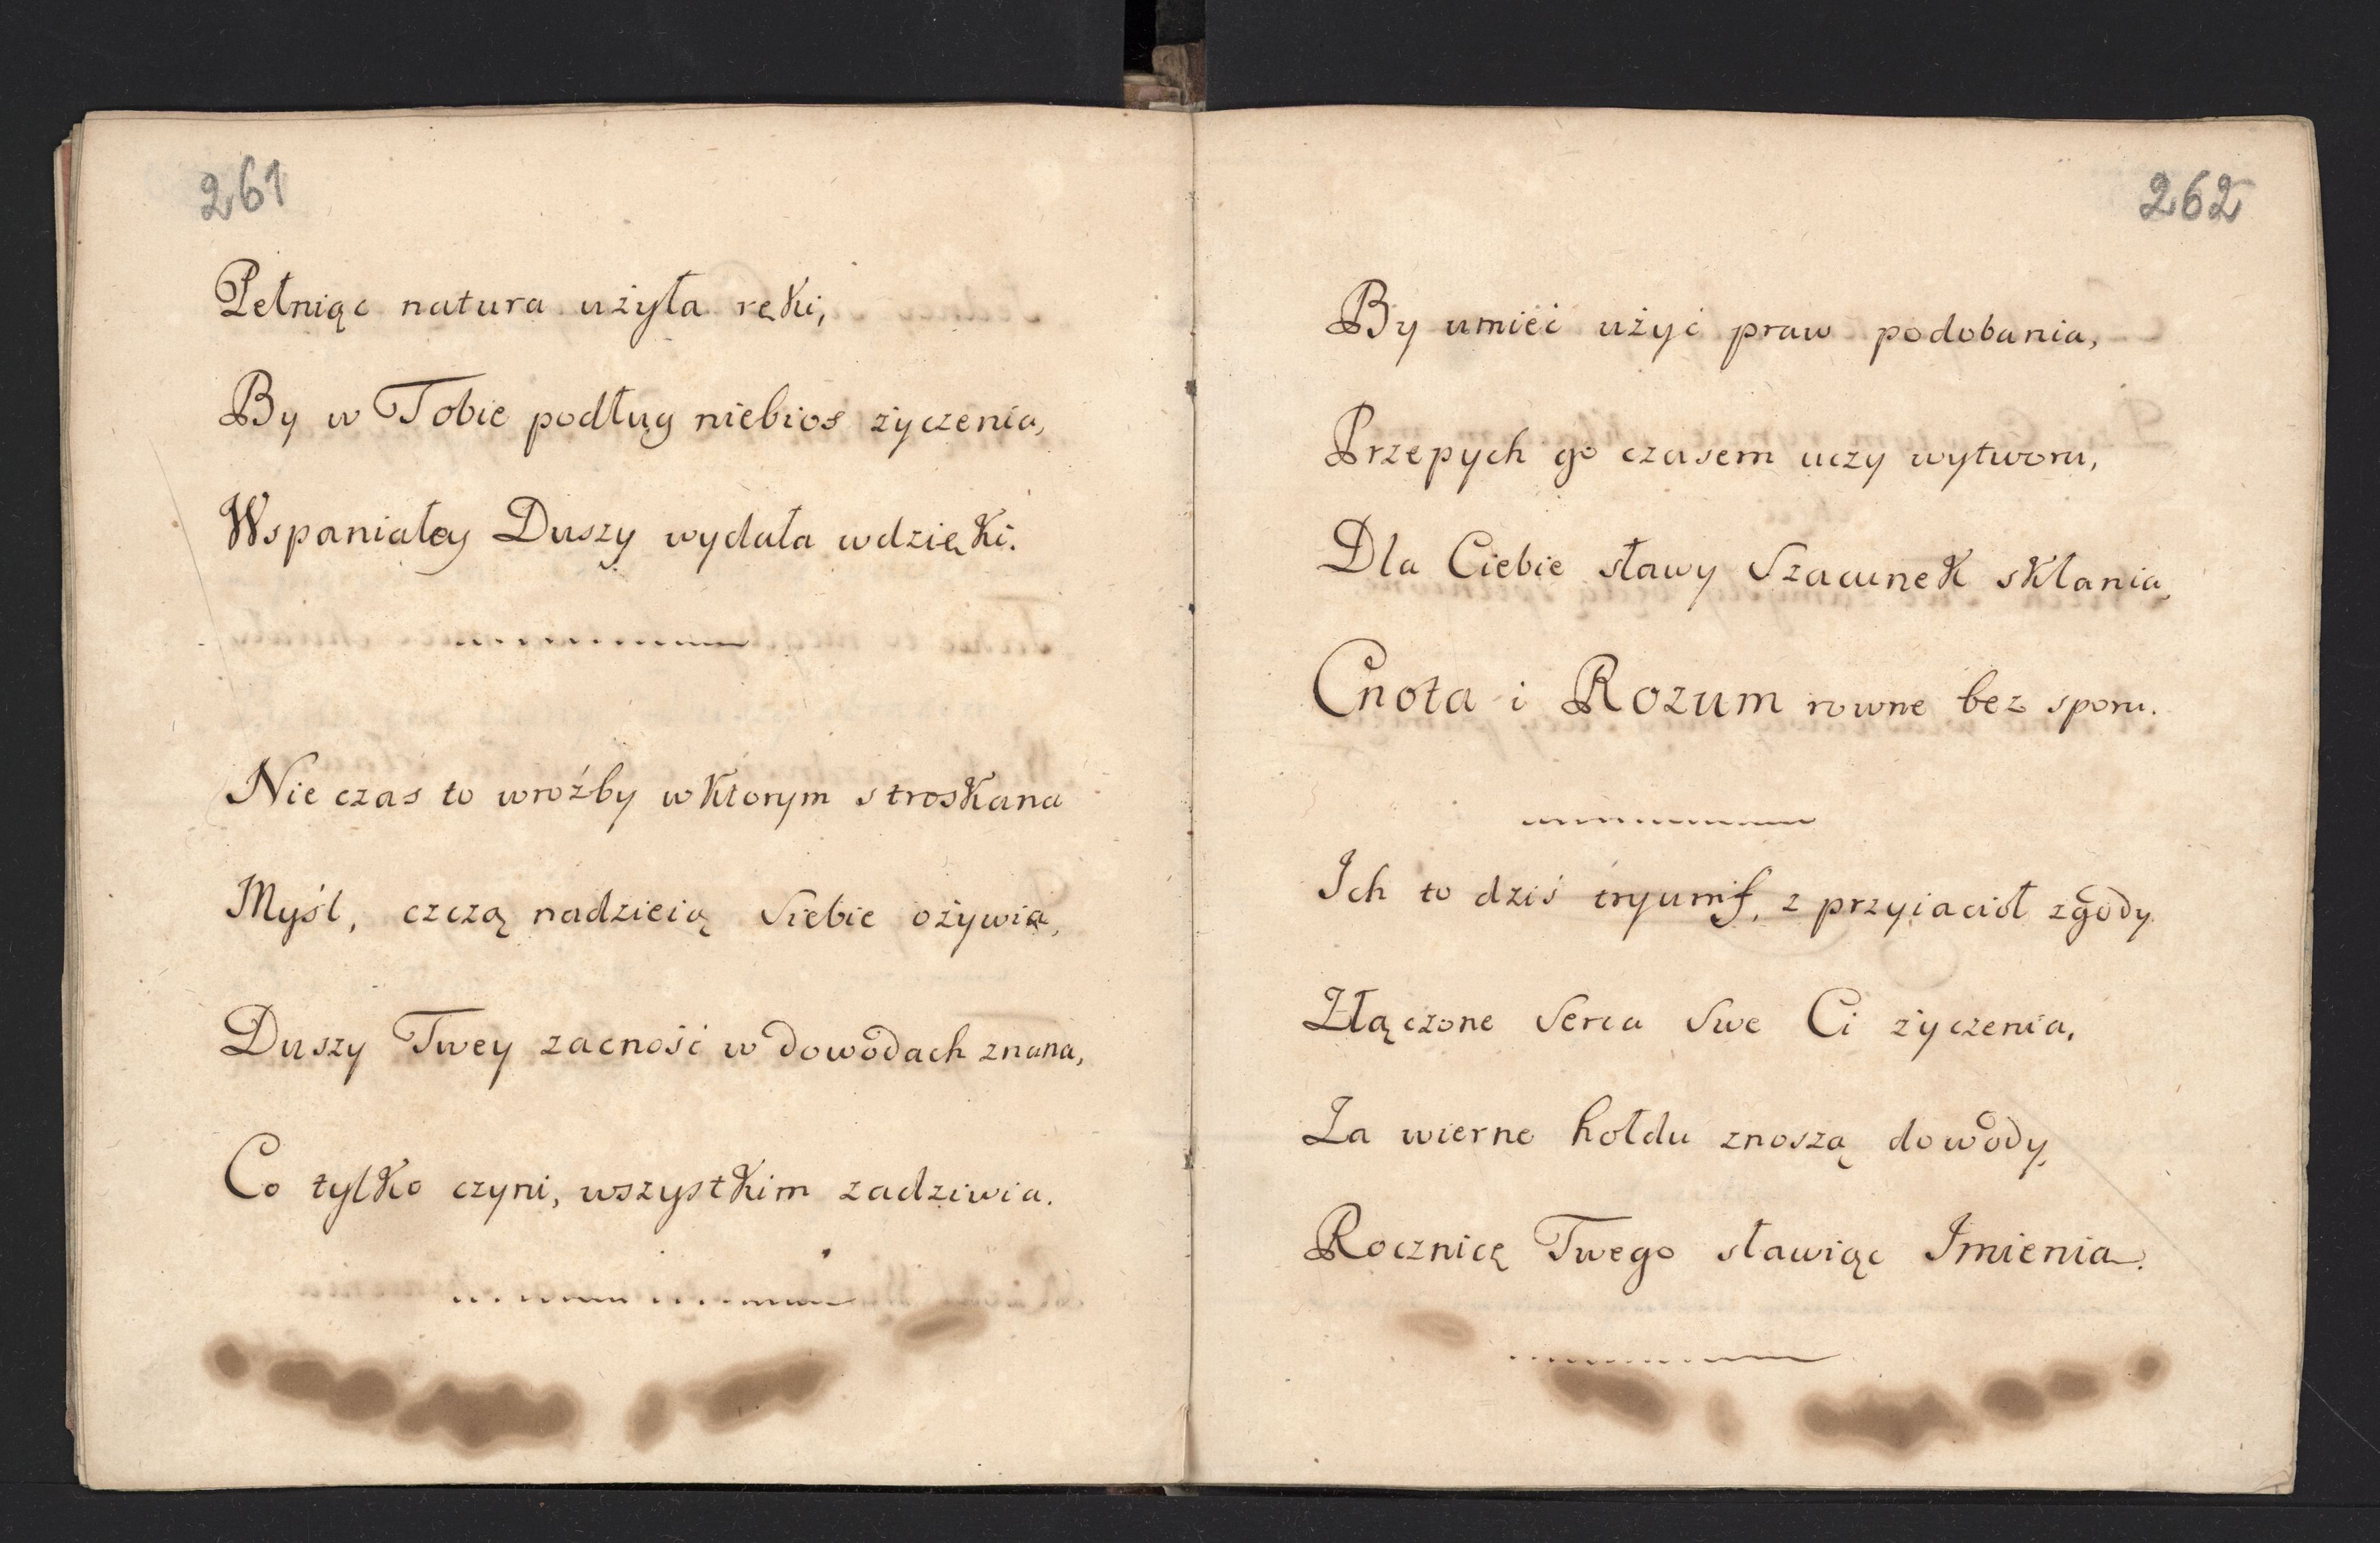 261
Pełniąc natura użyła ręki,
By w Tobie podług niebios życzenia,
Wspaniałey Duszy wydała wdzięki.
Nie czas to wroźby w ktorym stroskana
Myśl, czczą nadzieią Siebie ożywia,
Duszy Twey zacność w dowodach znana,
Co tylko czyni, wszystkim zadziwia.
262
By umieć użyć praw podobania,
Przepych go czasem uczy wytworu,
Dla Ciebie sławy Szacunek skłania,
Cnota i Rozum rowne bez sporu.
Ich to dziś tryumf, z przyiacioł zgody
Złączone Serca Swe Ci życzenia,
Za wierne hołdu znoszą dowody,
Rocznicę Twego sławiąc Imienia.